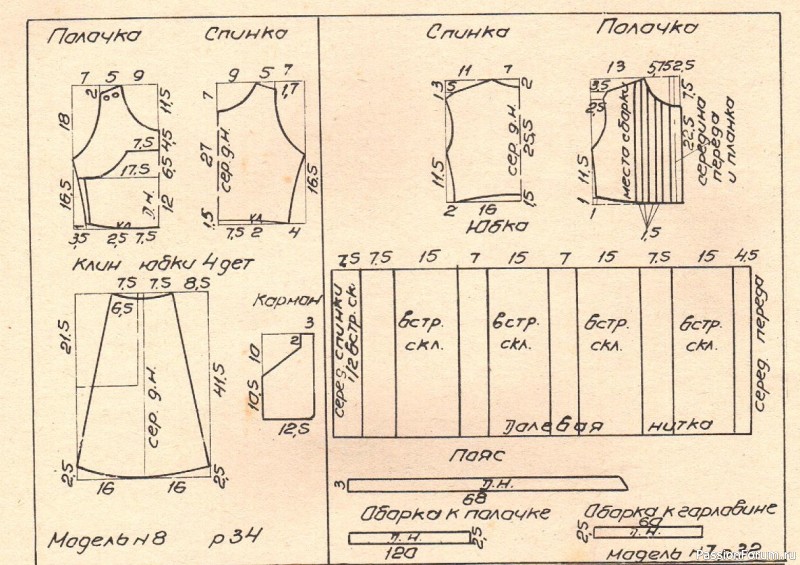 Палачка
Спинка
7 5 9
2
18
11,5
4,5
7,5
6,5
17,5
16,5
Д.Н.
12
3,5 2,5 7,5
9 5 7
1,7
7
27
сер. д.н.
16,5
1,5
7,5 2 4
Клин юбки 4 дет
7,5 7,5 8,5
6,5
21,5
сер. д.н.
41,5
2,5
2,5
16 16
Карман
3
2
10
10,5
12,5
Модель н 8 р 34
Спинка
Палачка
11 7
5
2
13
сер. д.н.
25,5
11,5
1,5
2 16
13
3,5
2,5
7,5
22,5
места сборки
середина
переда
и планка
11,5
1
1
1,5
Юбка
7,5 7,5 15 7 15 7 15 7,5 15 4,5
серед. спинки
1/2 встр. ск.
встр.
скл.
встр.
скл.
встр.
скл.
встр.
скл.
серед. переда
Далевая нитка
Паяс
3
Д.Н.
68
Оборка к палачке
Д.Н.
2,5
120
Оборка к гарлавине
60
2,5
Д.Н.
PassionForum.ru